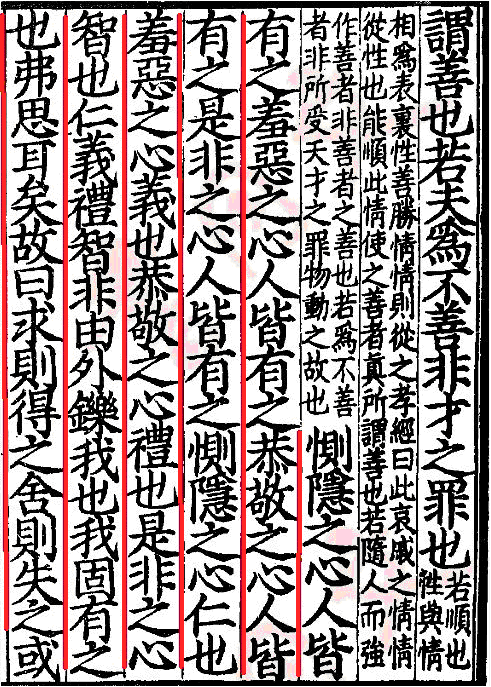 謂善也若夫爲不善非才之罪也若順也
性與情
相爲表裏性善勝情情則從之孝經曰此哀戚之情情
從性也能順此情使之善者真所謂善也若隨人而強
作善者非善者之善也若爲不善
者非所受天才之罪物動之故也
惻隱之心人皆
有之羞惡之心人皆有之恭敬之心人皆
有之是非之心人皆有之惻隱之心仁也
羞惡之心義也恭敬之心禮也是非之心
智也仁義禮智非由外鑠我也我固有之
也弗思耳矣故曰求則得之舍則失之或